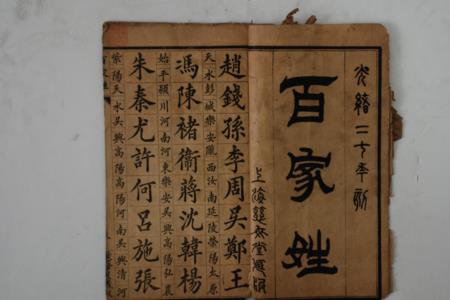 光緒二十年
百家姓
上海
趙錢孫李周吳鄭王
天水彭城樂安隴西汝南延陵滎陽太原
馮陳褚衞蔣沈韓楊
始平潁川河南河東樂安吳興高陽弘農
朱秦尤許何呂施張
紫陽天水吳興高陽高陽河南吳興清河